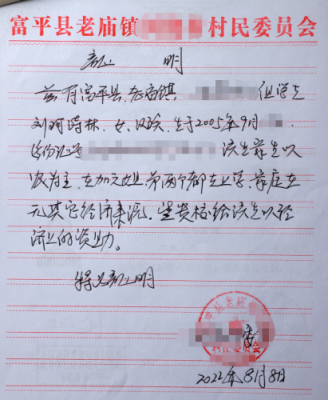 富平县老庙镇 村民委员会
证 明
兹有富平县老庙镇 组学生
刘珂 林,女,汉族,生于2005年9月
身份证号 该生家庭以
农为主,在加之姐弟两个都在上学,家庭在
无其它经济来源,望贵校给该生以经
济上的资助。
特此证明
富平县老庙镇
村民委员会
2022年8月8日